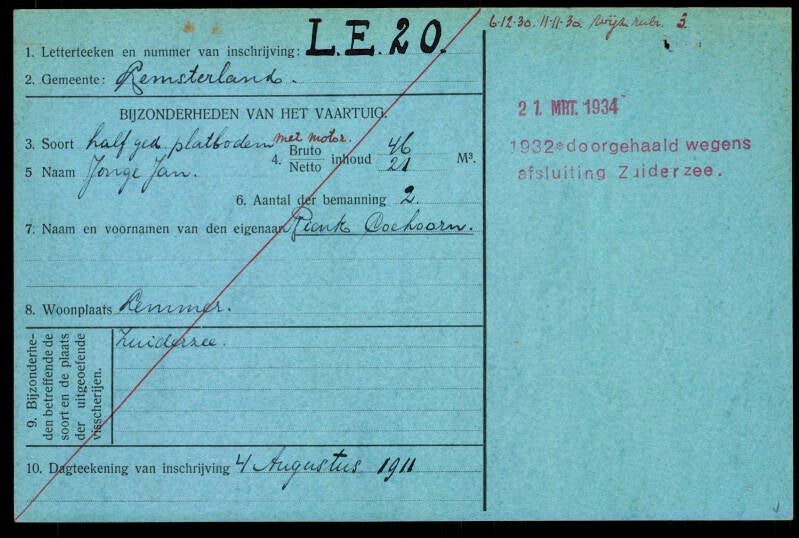 1. Letterteeken en nummer van inschrijving: L.E. 20.
2. Gemeente: Lemsterland.
BIJZONDERHEDEN VAN HET VAARTUIG.
3. Soort half ged. platbodem met motor.
4. Bruto 46
Netto inhoud 21 M³.
5 Naam Jonge Jan.
6. Aantal der bemanning 2.
7. Naam en voornamen van den eigenaar Rienk Coehoorn.
8. Woonplaats Lemmer.
9. Bijzonderhe-
den betreffende de
soort en de plaats
der uitgeoefende
visscherijen.
Zuiderzee.
10. Dagteekening van inschrijving 4 Augustus 1911
6-12-30. 11-11-30. Wijz. rubr. 3.
21. MRT. 1934
1932 doorgehaald wegens
afsluiting Zuiderzee.